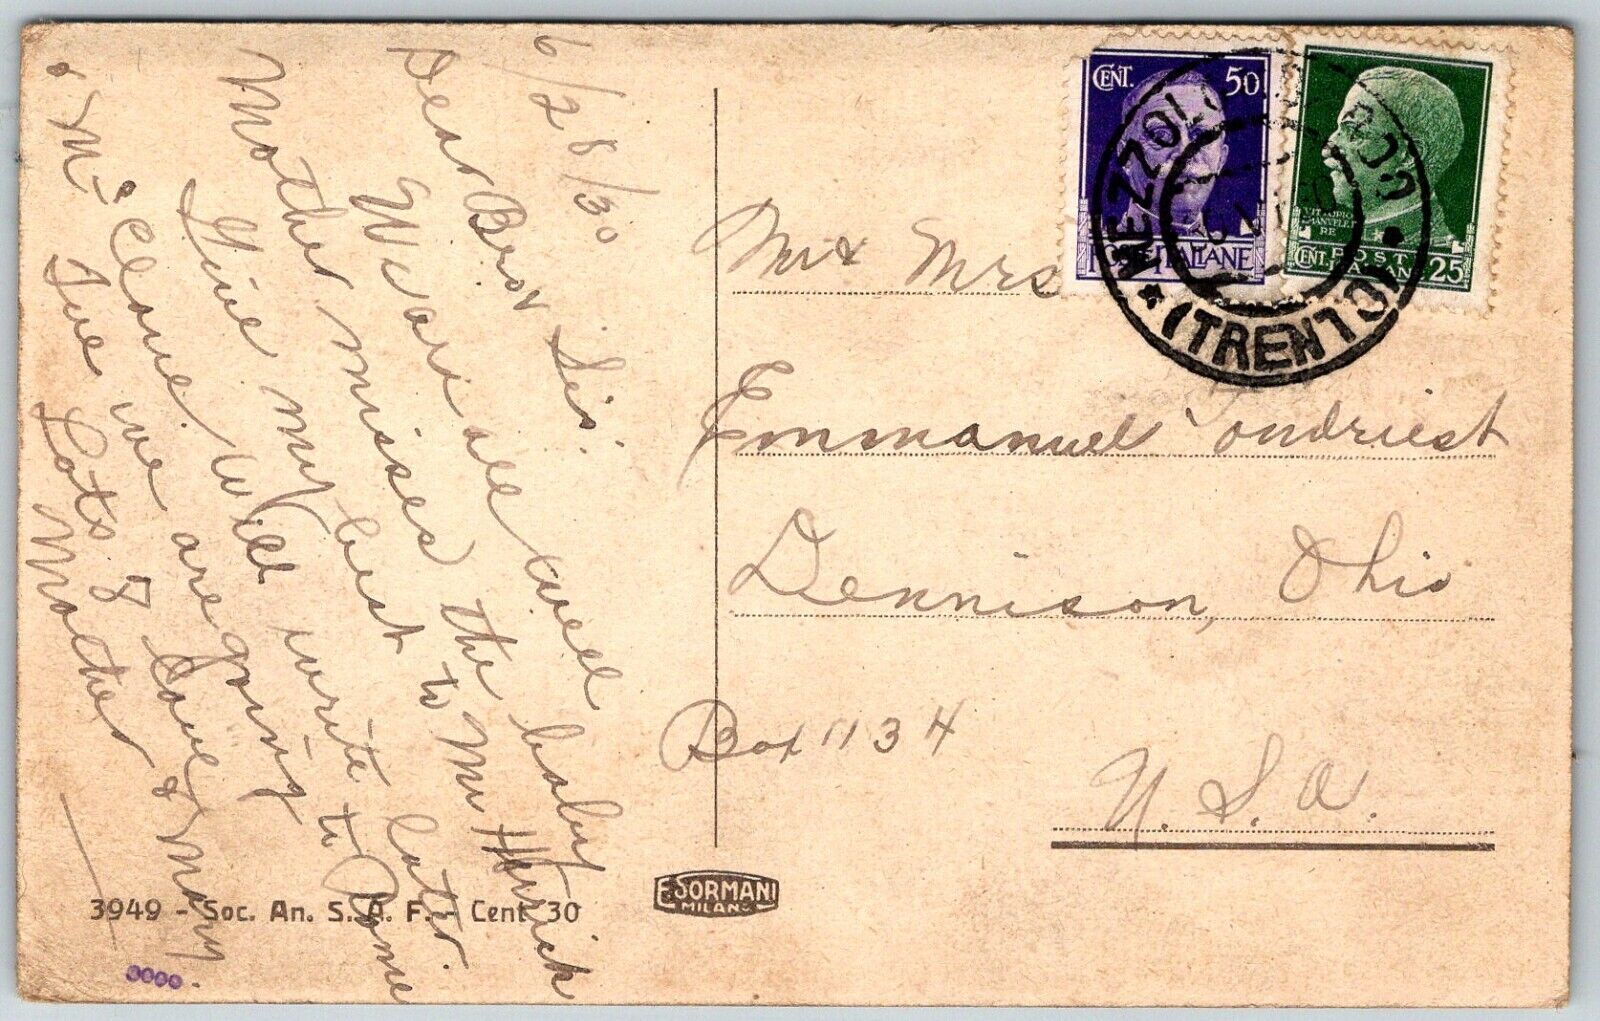 6/28/30
Dear Bro & Sis.
We are all well
Mother misses the baby
Give my best to Mr Herrick
& Mr Clane. Will write later.
Tue we are going to Rome
Lots of love
Mother & Mary
3949 - Soc. An. S. A. F. - Cent 30
E. SORMANI
MILANO
CENT. 50
POSTE ITALIANE
CENT. POSTE ITALIANE 25
MEZZOLOMBARDO
(TRENTO)
Mr & Mrs
Emmanuel Tondriest
Dennison, Ohio
Box 1134
U. S. A.